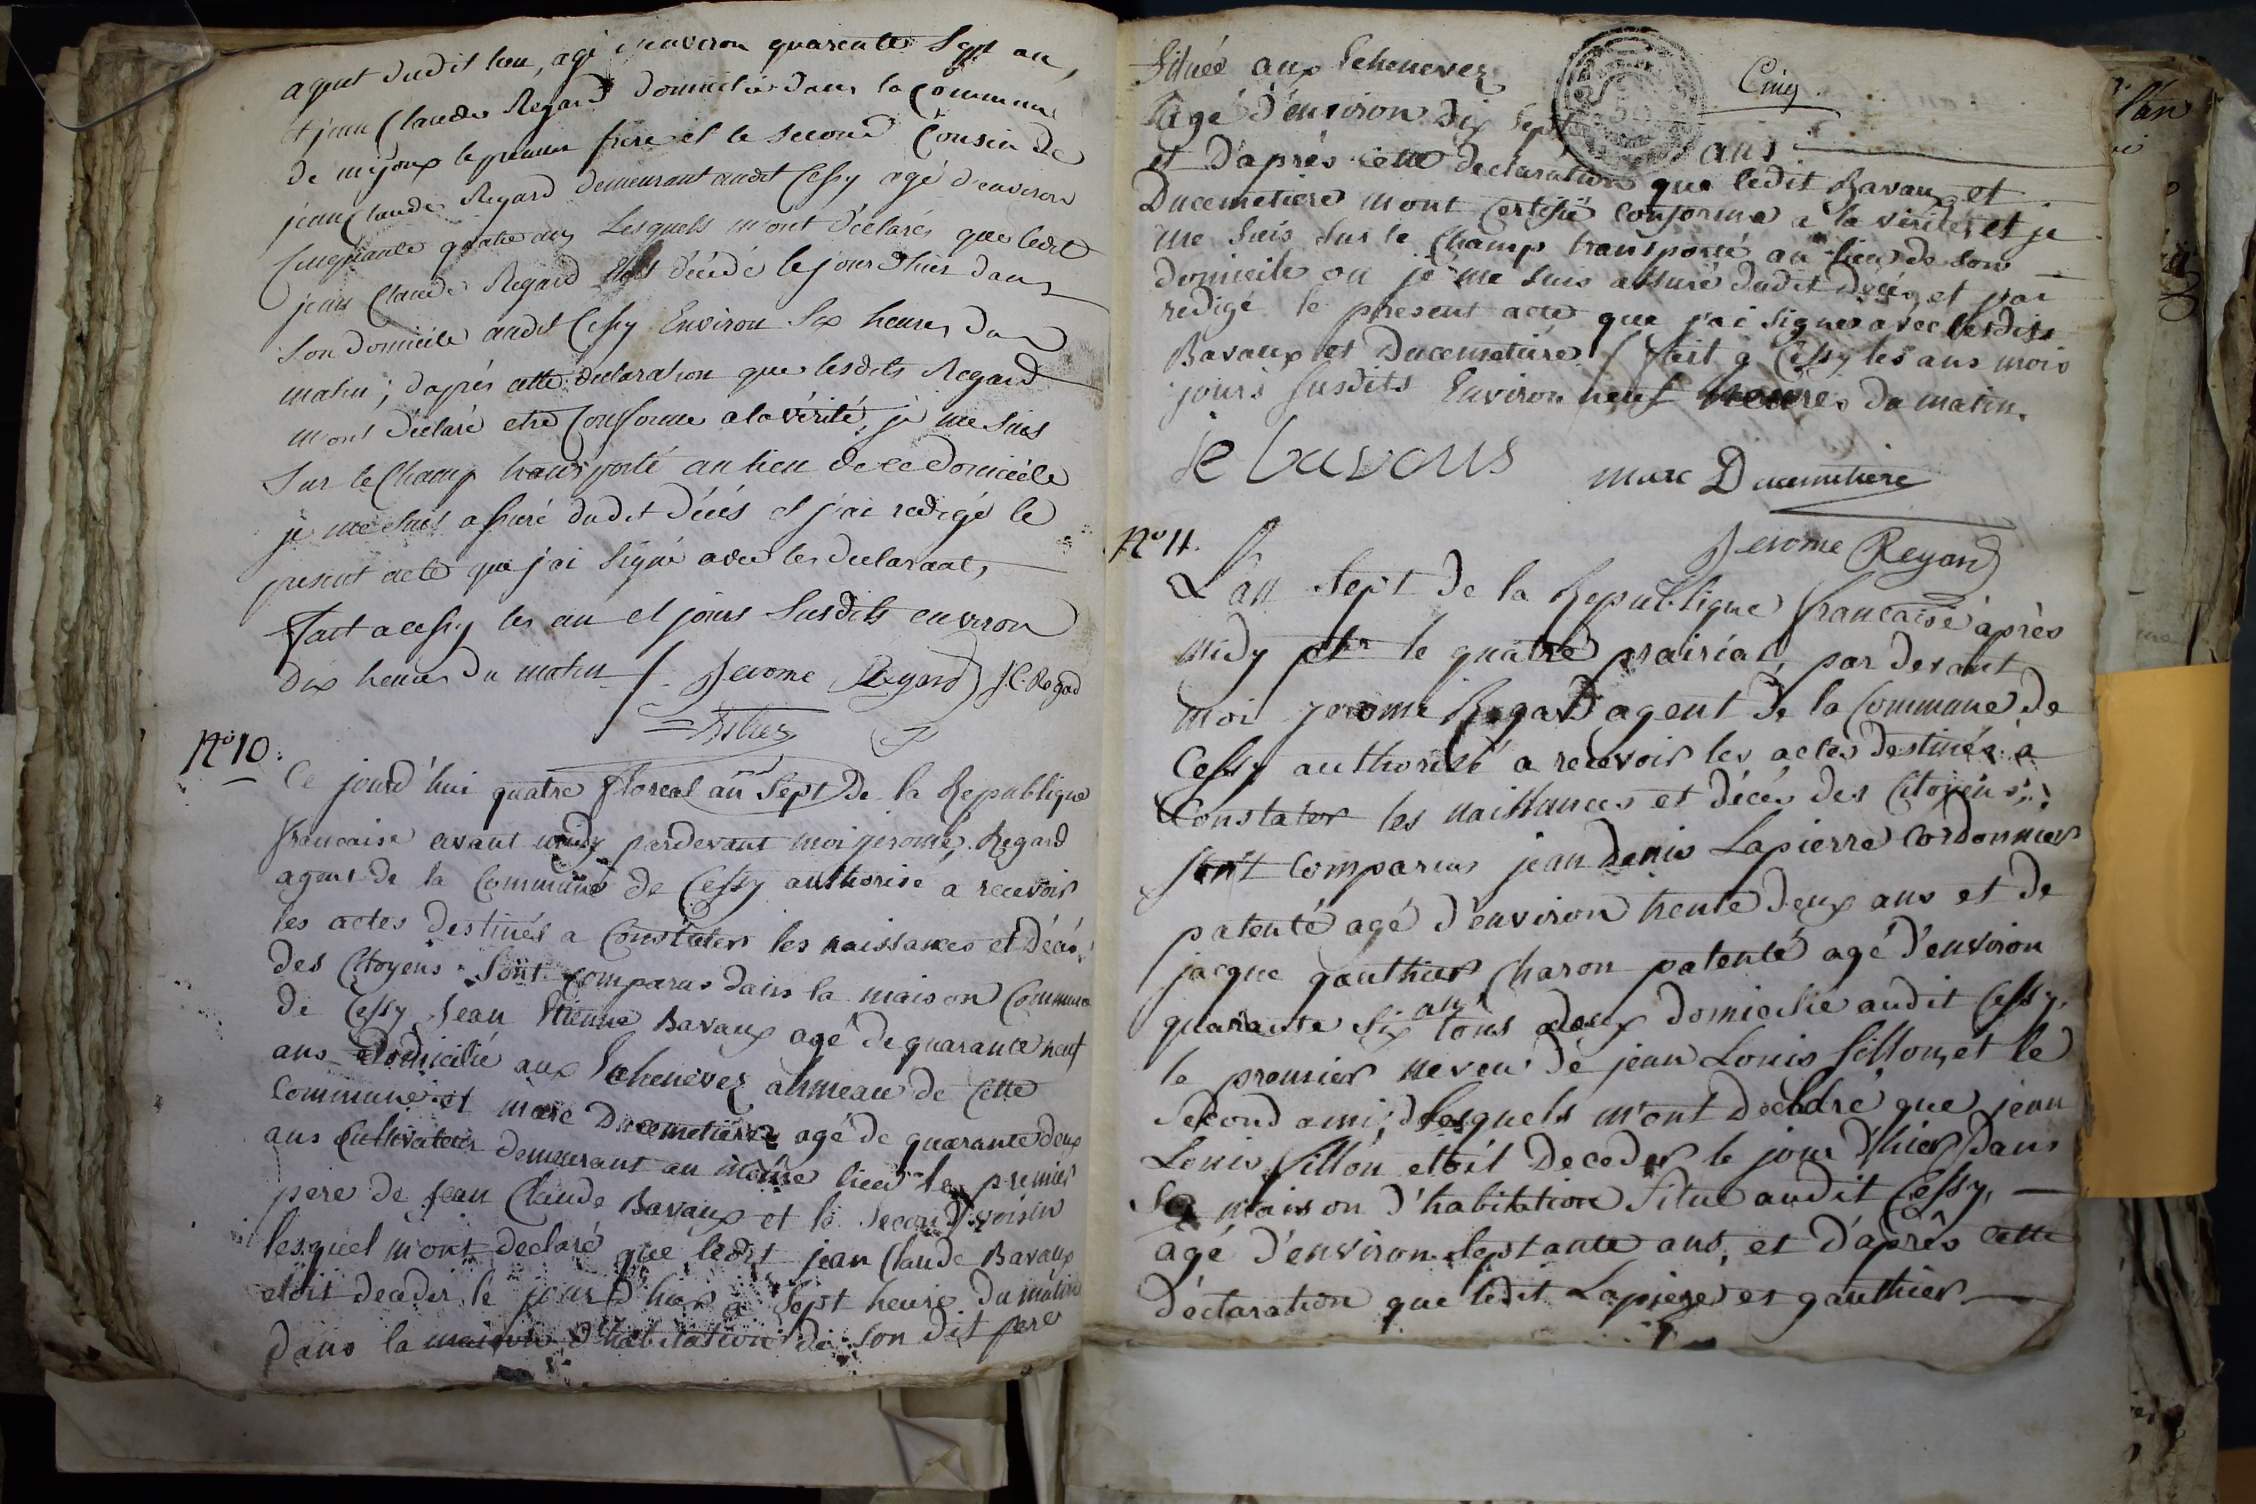 agent dudit lieu, agé d'environ quarente Sept an,
et jean Claude Regard domicilié dans la Commune
de mijoux le premier frere et le second Cousin de
jean Claude Regard demeurant audit Cessy agé d'environ
Cinquante quatre ans Lesquels m'ont déclarés que ledit
jean Claude Regard est décédé le jour d'hier dans
Son domicile audit Cessy Environ Six heures du
matin; d'après cette déclaration que lesdits Regard
m'ont déclaré etre Conforme a la vérité, je me suis
Sur le Champ transporté au lieu de ce domicile
je me suis assuré dudit décés et j'ai redigé le
present acte que j'ai signé avec les declarants
Fait a cessy les an et jours susdits environ
dix heures du matin /. Jerome Regard J.C. Regad
N° 10.
Ce jourd'hui quatre floreal an Sept de la Republique
francaise avant midy pardevant moi jerome Regard
agent de la Commune de Cessy authorisé a recevoir
les actes destinés a Constater les naissances et décés
des Citoyens Sont comparus dans la maison Commune
de Cessy Jean Etienne Bavaux agé de quarante neuf
ans domicilié aux Echenevez ahmeau de cette
Commune et marc Ducemetiere agé de quarante deux
ans Cultivateur demeurant au même lieu le premier
pere de jean Claude Bavaux et le Second voisin
lesquel m'ont declaré que ledit jean Claude Bavaux
etoit deceder le jour d'hier a Sept heure du matin
dans la maison d'habitation de son dit pere
Située aux Echenevez
Cinq
agé d'environ dix Sept ans
et D'après cette declaration que ledit Bavaux et
Ducemetiere mont Certifié conforme a la vérité, et je
me suis sur le Champ transporté au lieu de son
domicile ou je me suis assuré dudit décés et j'ai
redigé le present acte que j'ai signer avec lesdits
Bavaux et Ducemetiere / fait a Cessy les ans mois
jours susdits Environ neuf heures du matin.
je bavous marc Ducemetiere
Jerome Regard
N° 11.
L'an Sept de la Republique francaise après
midy le quatre prairéal, par devant
moi jerome Regard agent de la Commune de
Cessy authorisé a recevoir les actes destinés a
Constater les naissances et décés des Citoyens
sont comparus jean denis Lapierre Cordonnier
patenté agé d'environ trente deux ans et de
jacque gauthier Charon patenté agé d'environ
quarante six ans tous deux domicilié audit Cessy,
le premier neveu de jean Louis fillon, et le
second ami; lesquels m'ont déclaré que jean
Louis fillon etoit Deceder le jour d'hier dans
Sa maison d'habitation situé audit Cessy,
agé d'environ septante ans, et d'après cette
déclaration que ledit Lapierre et gauthier